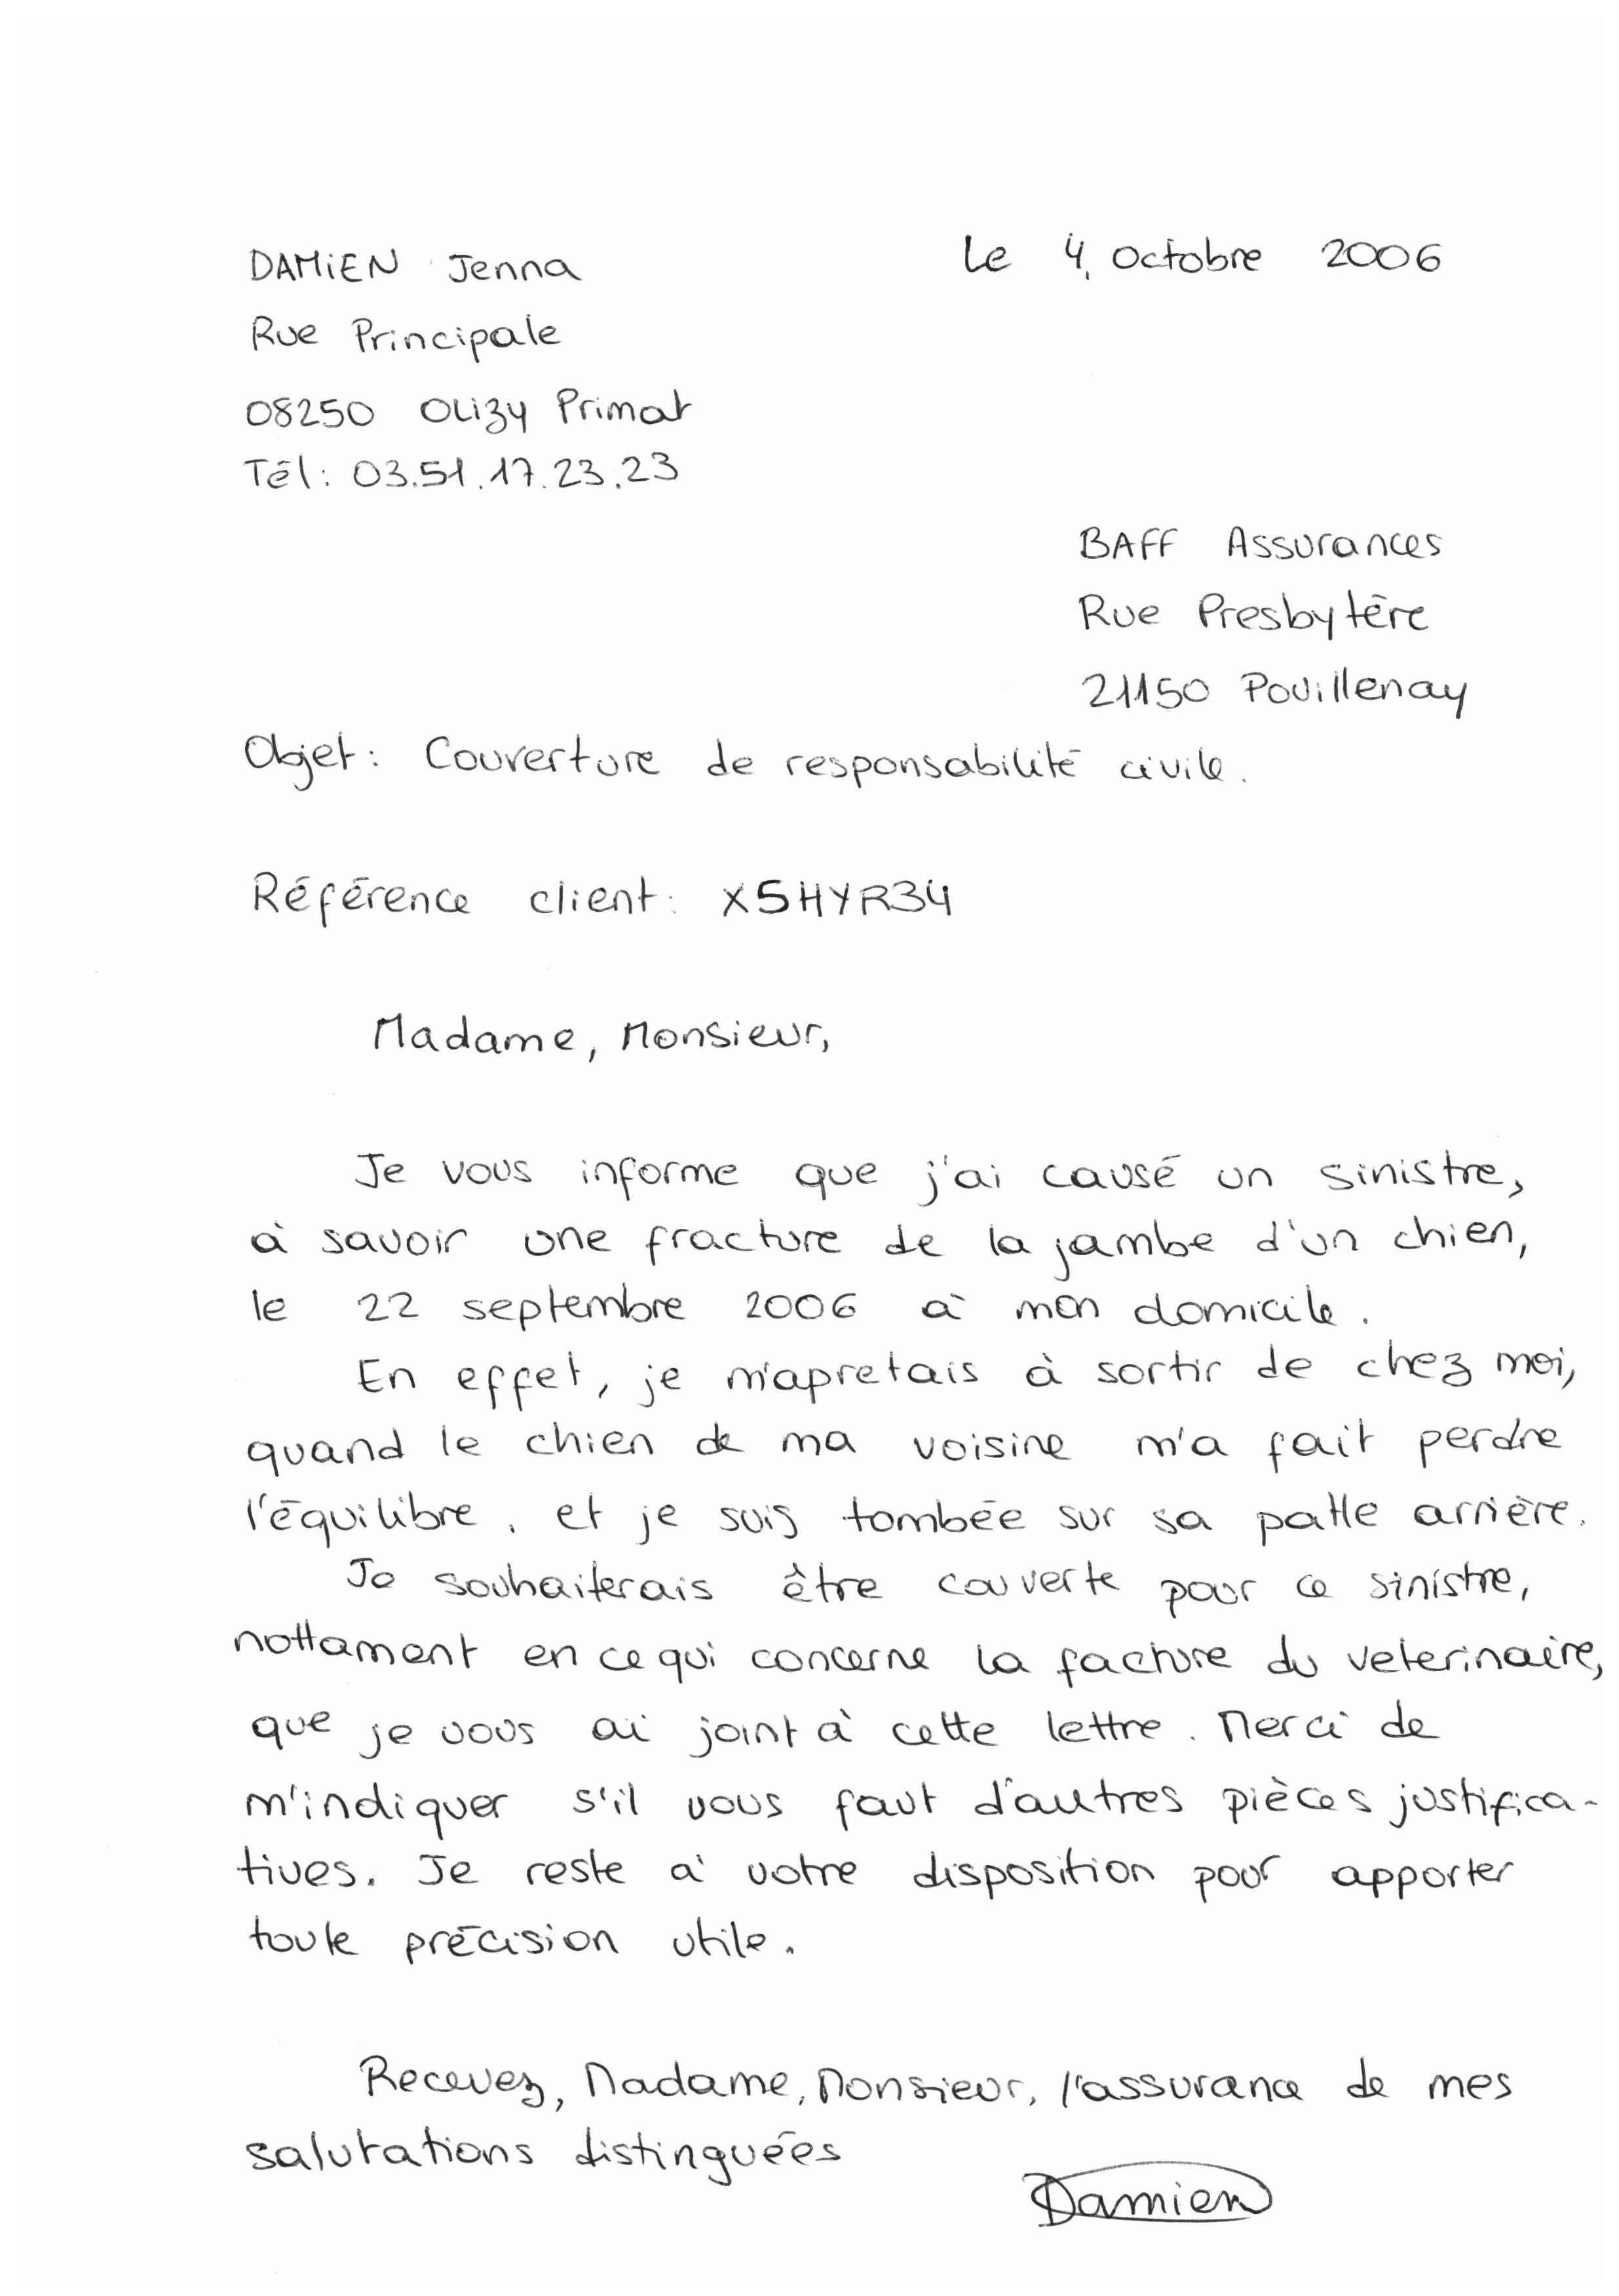 DAMIEN Jenna
Le 4, octobre 2006
Rue Principale
08250 Olizy Primat
Tél: 03.51.17.23.23
BAFF Assurances
Rue Presbytère
21150 Pouillenay
Objet: Couverture de responsabilité civile.
Référence client: X5HYR34
Madame, Monsieur,
Je vous informe que j'ai causé un sinistre,
à savoir une fracture de la jambe d'un chien,
le 22 septembre 2006 à mon domicile.
En effet, je m'apretais à sortir de chez moi,
quand le chien de ma voisine m'a fait perdre
l'équilibre, et je suis tombée sur sa patte arrière.
Je souhaiterais être couverte pour ce sinistre,
nottament en ce qui concerne la facture du veterinaire,
que je vous ai joint à cette lettre. Merci de
m'indiquer s'il vous faut d'autres pièces justifica-
tives. Je reste à votre disposition pour apporter
toute précision utile.
Recevez, Madame, Monsieur, l'assurance de mes
salutations distinguées
Damien